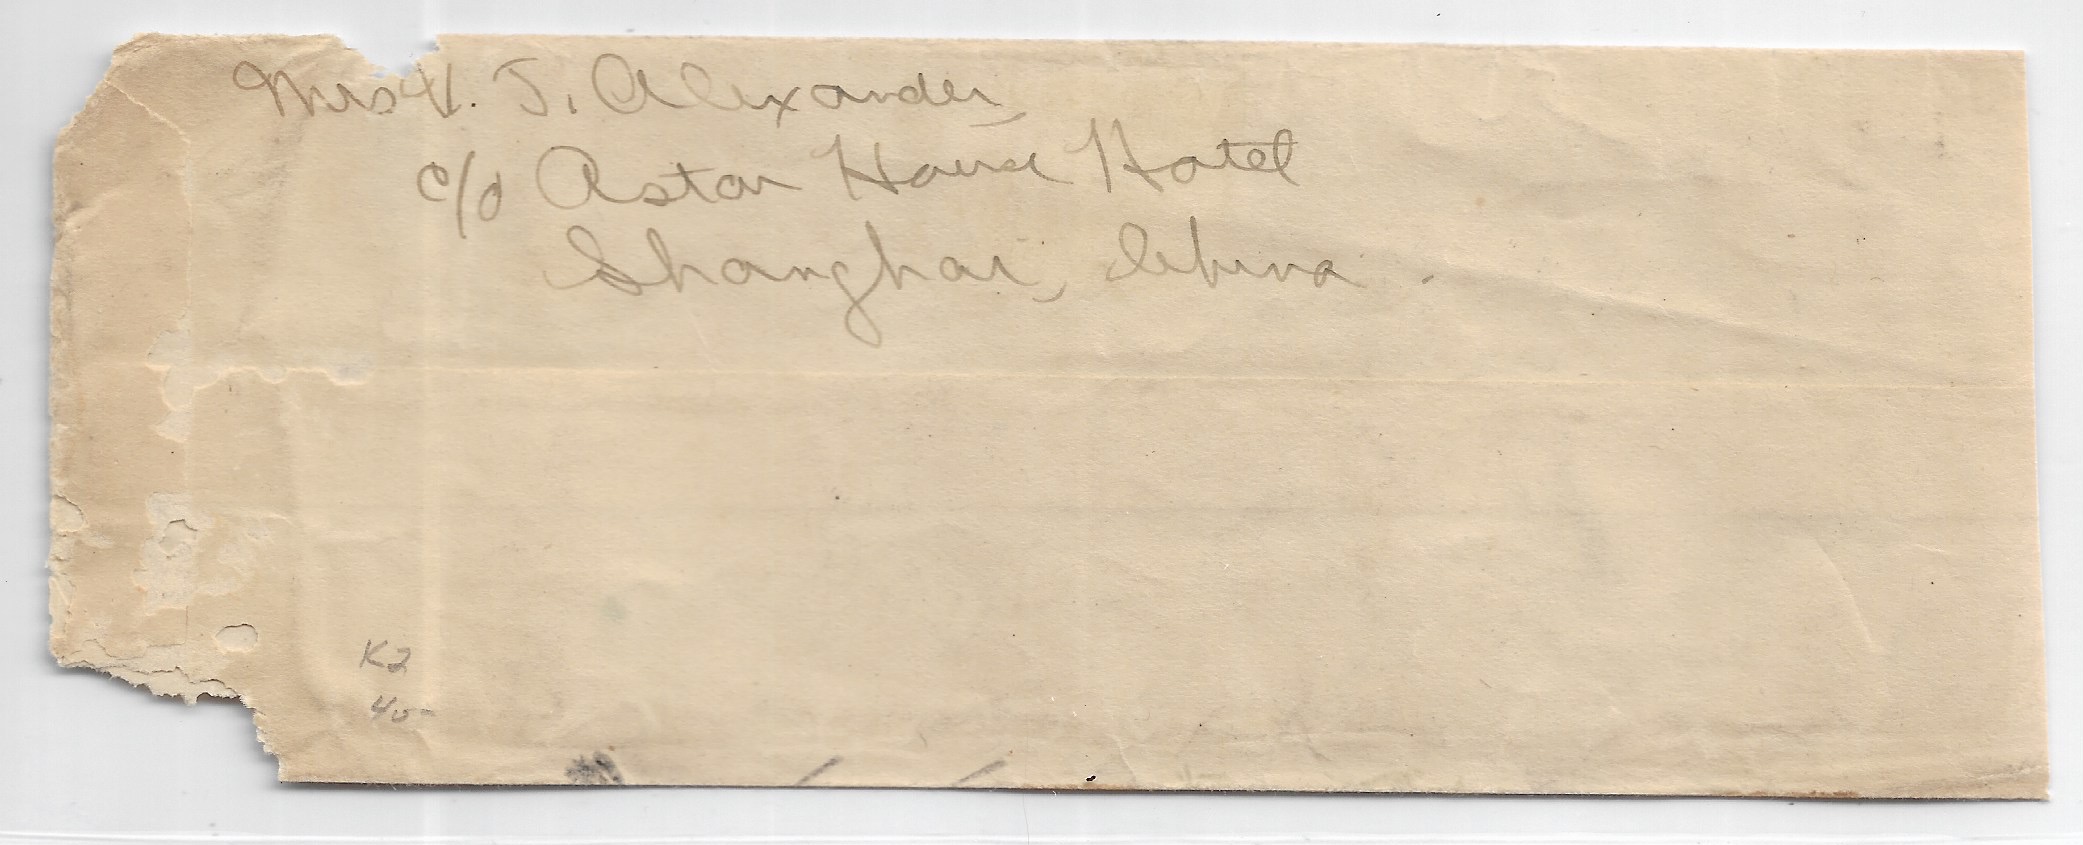 Mrs V. J. Alexander,
c/o Astor House Hotel
Shanghai, China.
K2
40-